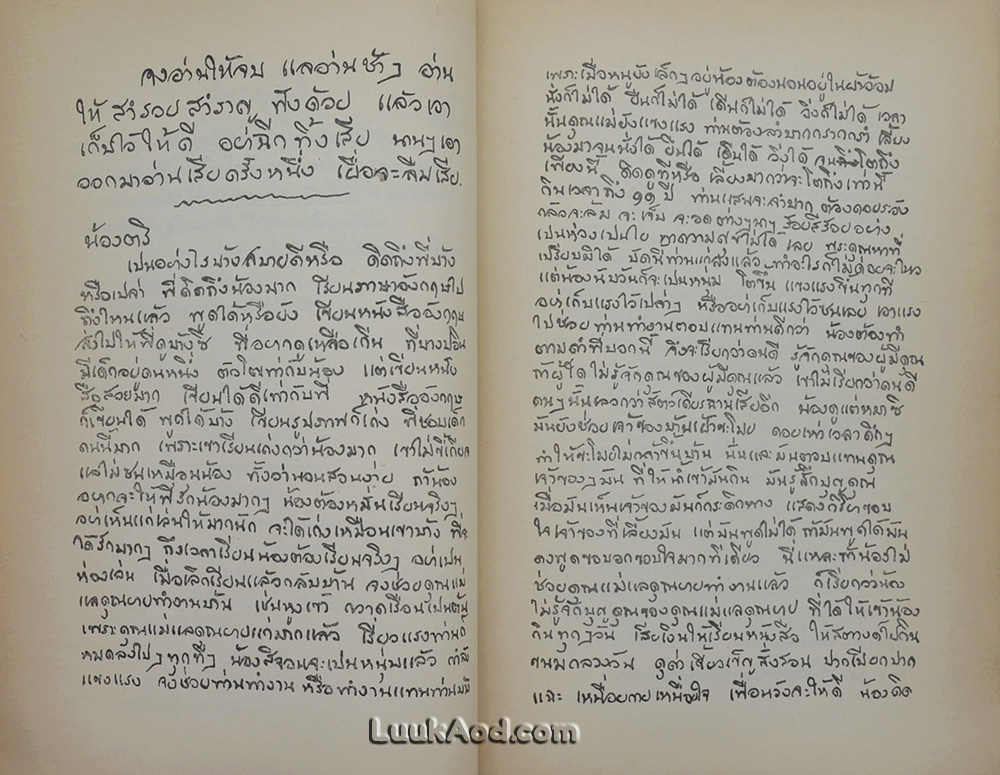 จงอ่านให้จบ แลอ่านช้าๆ อ่าน
ให้สำรอยสำราญ ฟังด้วย แล้วเอา
เก็บไว้ให้ดี อย่าฉีกทิ้งเสีย นานๆเอา
ออกมาอ่านเสียครั้งหนึ่ง เผื่อจะลืมเสีย.
น้องตรี
เป็นอย่างไรบ้างสบายดีหรือ คิดถึงพี่บ้าง
หรือเปล่า พี่คิดถึงน้องมาก เรียนภาษาอังกฤษไป
ถึงไหนแล้ว พูดได้หรือยัง เขียนหนังสืออังกฤษ
ส่งไปให้พี่ดูบ้างซี พี่อยากดูเหลือเกิน ที่บางปะอิน
มีเด็กอยู่คนหนึ่ง ตัวโตเท่ากับน้อง แต่เขียนหนัง
สือสวยมาก เขียนได้ดีเท่ากับพี่ หนังสืออังกฤษ
ก็เขียนได้ พูดได้บ้าง เขียนรูปภาพก็เก่ง พี่ชอบเด็ก
คนนี้มาก เพราะเขาเรียนเก่งกว่าน้องมาก เขาไม่ขี้เกียจ
แลไม่ซนเหมือนน้อง ทั้งว่านอนสอนง่าย ถ้าน้อง
อยากจะให้พี่รักน้องมากๆ น้องต้องหมั่นเรียนจริงๆ
อย่าเห็นแก่เล่นให้มากนัก จะได้เก่งเหมือนเขาบ้าง พี่จะ
ได้รักมากๆ ถึงเวลาเรียนน้องต้องเรียนจริงๆ อย่าเป็น
ห่วงเล่น เมื่อเลิกเรียนแล้วกลับบ้าน จงช่วยคุณแม่
แลคุณยายทำงานบ้าน เช่นหุงเข้า กวาดเรือนเป็นต้น
เพราะคุณแม่แลคุณยายแก่มากแล้ว เรี่ยวแรงท่านก็
หมดลงไปๆทุกทีๆ น้องสิจวนจะเป็นหนุ่มแล้ว กำลัง
แขงแรง จงช่วยท่านทำงาน หรือทำงานแทนท่านบ้าง
เพราะเมื่อหนูยังเล็กๆ อยู่น้องต้องนอนอยู่ในผ้าอ้อม
นั่งก็ไม่ได้ ยืนก็ไม่ได้ เดินก็ไม่ได้ วิ่งก็ไม่ได้ เวลา
นั้นคุณแม่ยังแขงแรง ท่านต้องลำบากตรากตรำ เลี้ยง
น้องมาจนนั่งได้ ยืนได้ เดินได้ วิ่งได้ จนโตถึง
เพียงนี้ คิดดูทีหรือ เลี้ยงมากว่าจะโตถึงเท่านี้
กินเวลาถึง ๑๑ ปี ท่านแสนจะลำบาก ต้องคอยระวัง
กลัวจะล้ม จะเจ็บ จะอดต่างๆนาๆ ร้อยสีร้อยอย่าง
เป็นห่วงเป็นใย หาความศุขไม่ได้เลย พระคุณหาที่
เปรียบมิได้ บัดนี้ท่านแก่ลงแล้ว ทำอะไรก็ไม่ค่อยจะไหว
แต่น้องนับวันก็จะเป็นหนุ่ม โตขึ้น แขงแรงขึ้นทุกที
อย่าเก็บแรงไว้เปล่าๆ หรืออย่าเก็บแรงไว้ซนเลย เอาแรง
ไปช่วยท่านทำงานตอบแทนท่านดีกว่า น้องต้องทำ
ตามคำพี่บอกนี้ จึงจะเรียกว่าคนดี รู้จักคุณของผู้มีคุณ
ถ้าผู้ใดไม่รู้จักคุณของผู้มีคุณแล้ว เขาไม่เรียกว่าคนดี
คนๆนั้นเลวกว่าสัตว์เดียรฉานเสียอีก น้องดูแต่หมาซิ
มันยังช่วยเจ้าของบ้านเฝ้าขะโมย คอยเห่าเวลาดึกๆ
ทำให้ขะโมยไม่กล้าขึ้นบ้าน นั่นและมันตอบแทนคุณ
เจ้าของๆมัน ที่ให้เข้ามันกิน มันรู้สึกบุญคุณ
เมื่อมันเห็นเจ้าของมันก็กระดิกหาง แสดงกิริยาขอบ
ใจเจ้าของที่เลี้ยงมัน แต่มันพูดไม่ได้ ถ้ามันพูดได้มัน
คงพูดขอบอกขอบใจมากทีเดียว นี่แหละถ้าน้องไม่
ช่วยคุณแม่แลคุณยายทำงานแล้ว ก็เรียกว่าน้อง
ไม่รู้จักบุญคุณของคุณแม่แลคุณยาย ที่ได้ให้เข้าน้อง
กินทุกๆวัน เสียเงินให้เรียนหนังสือ ให้สตางค์ไปกิน
ขนมกลางวัน ดุด่า เฆี่ยวเข็ญ สั่งสอน ปากเปียกปาก
แฉะ เหนื่อยกายเหนื่อยใจ เพื่อหวังจะให้ดี น้องคิด
LuukAod.com